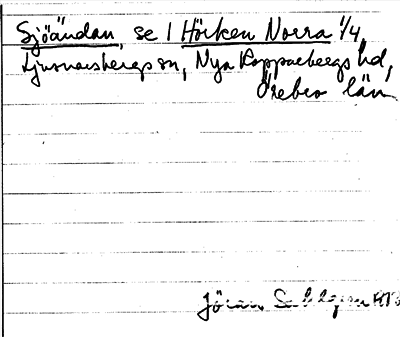 Sjöändan, se 1 Hörken Norra 1/4,
Ljusnarsbergs sn, Nya Kopparbergs hd,
Örebro län
Jöran Sahlgren